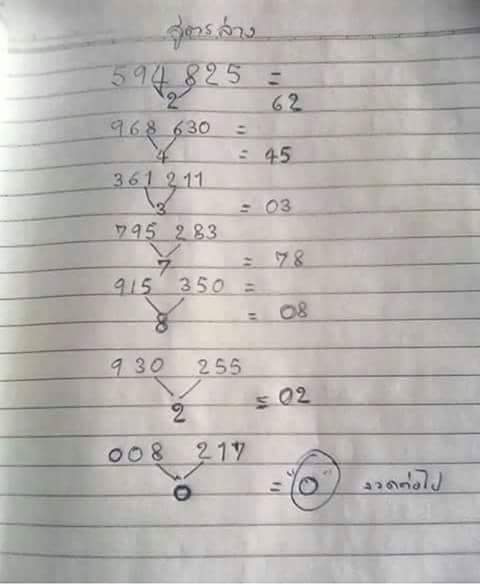 สูตรล่าง
594 825 =
2 62
968 630 =
4 = 45
361 211
3 = 03
795 283
7 = 78
915 350 =
8 = 08
930 255
2 = 02
008 217
0 = "0" งวดต่อไป